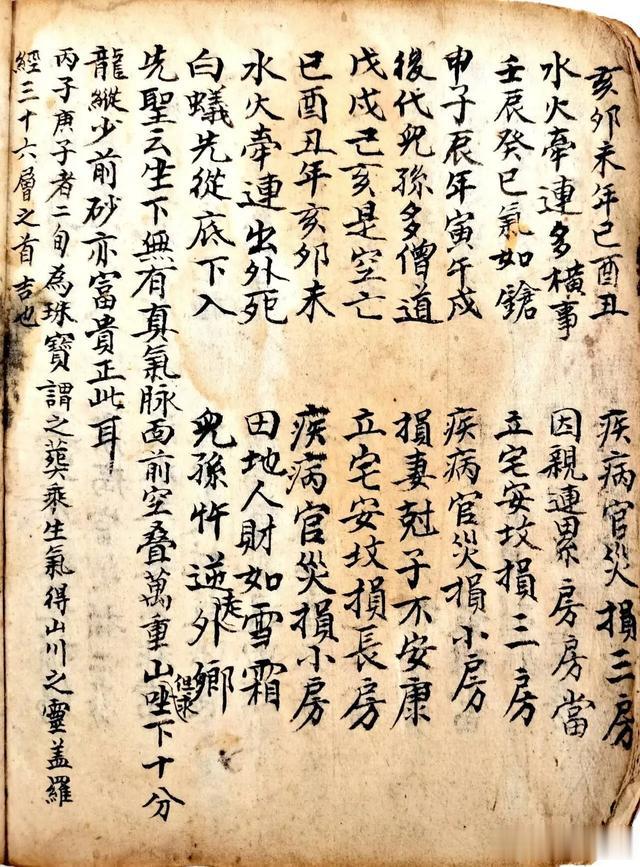 亥夘未年已酉丑 疾病官災損三房
水火牽連多橫事 因親連累房房當
壬辰癸巳氣如鎗 立宅安坟損三房
申子辰年寅午戌 疾病官災損小房
後代兒孫多僧道 損妻尅子不安康
戊戌己亥是空亡 立宅安坟損長房
已酉丑年亥夘未 疾病官災損小房
水火牽連出外死 田地人財如雪霜
白蟻先從底下入 兒孫忤逆走外鄉
先聖云生下無有真氣脉面前空叠萬重山但求唑下十分
龍縱少前砂亦富貴正此耳
丙子庚子者二旬為珠寶謂之葬乘生氣得山川之靈盖羅
經三十六層之首吉也